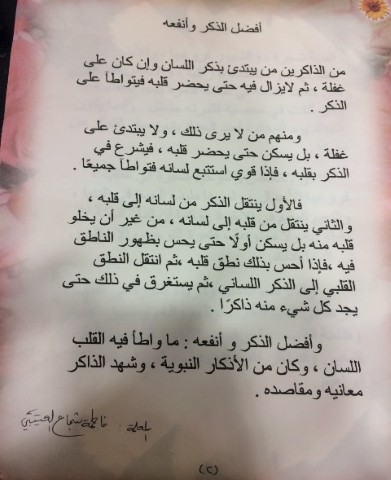 أفضل الذكر وأنفعه
من الذاكرين من يبتدئ بذكر اللسان وإن كان على
غفلة ، ثم لايزال فيه حتى يحضر قلبه فيتواطأ على
الذكر .
ومنهم من لا يرى ذلك ، ولا يبتدئ على
غفلة ، بل يسكن حتى يحضر قلبه ، فيشرع في
الذكر بقلبه ، فإذا قوي استتبع لسانه فتواطأ جميعًا .
فالأول ينتقل الذكر من لسانه إلى قلبه ،
والثاني ينتقل من قلبه إلى لسانه ، من غير أن يخلو
قلبه منه بل يسكن أولًا حتى يحس بظهور الناطق
فيه ،فإذا أحس بذلك نطق قلبه ،ثم انتقل النطق
القلبي إلى الذكر اللساني ،ثم يستغرق في ذلك حتى
يجد كل شيء منه ذاكرًا .
و أفضل الذكر و أنفعه : ما واطأ فيه القلب
اللسان ، وكان من الأذكار النبوية ، وشهد الذاكر
معانيه ومقاصده .
فاطمة شجاع العتيبي
(٢)